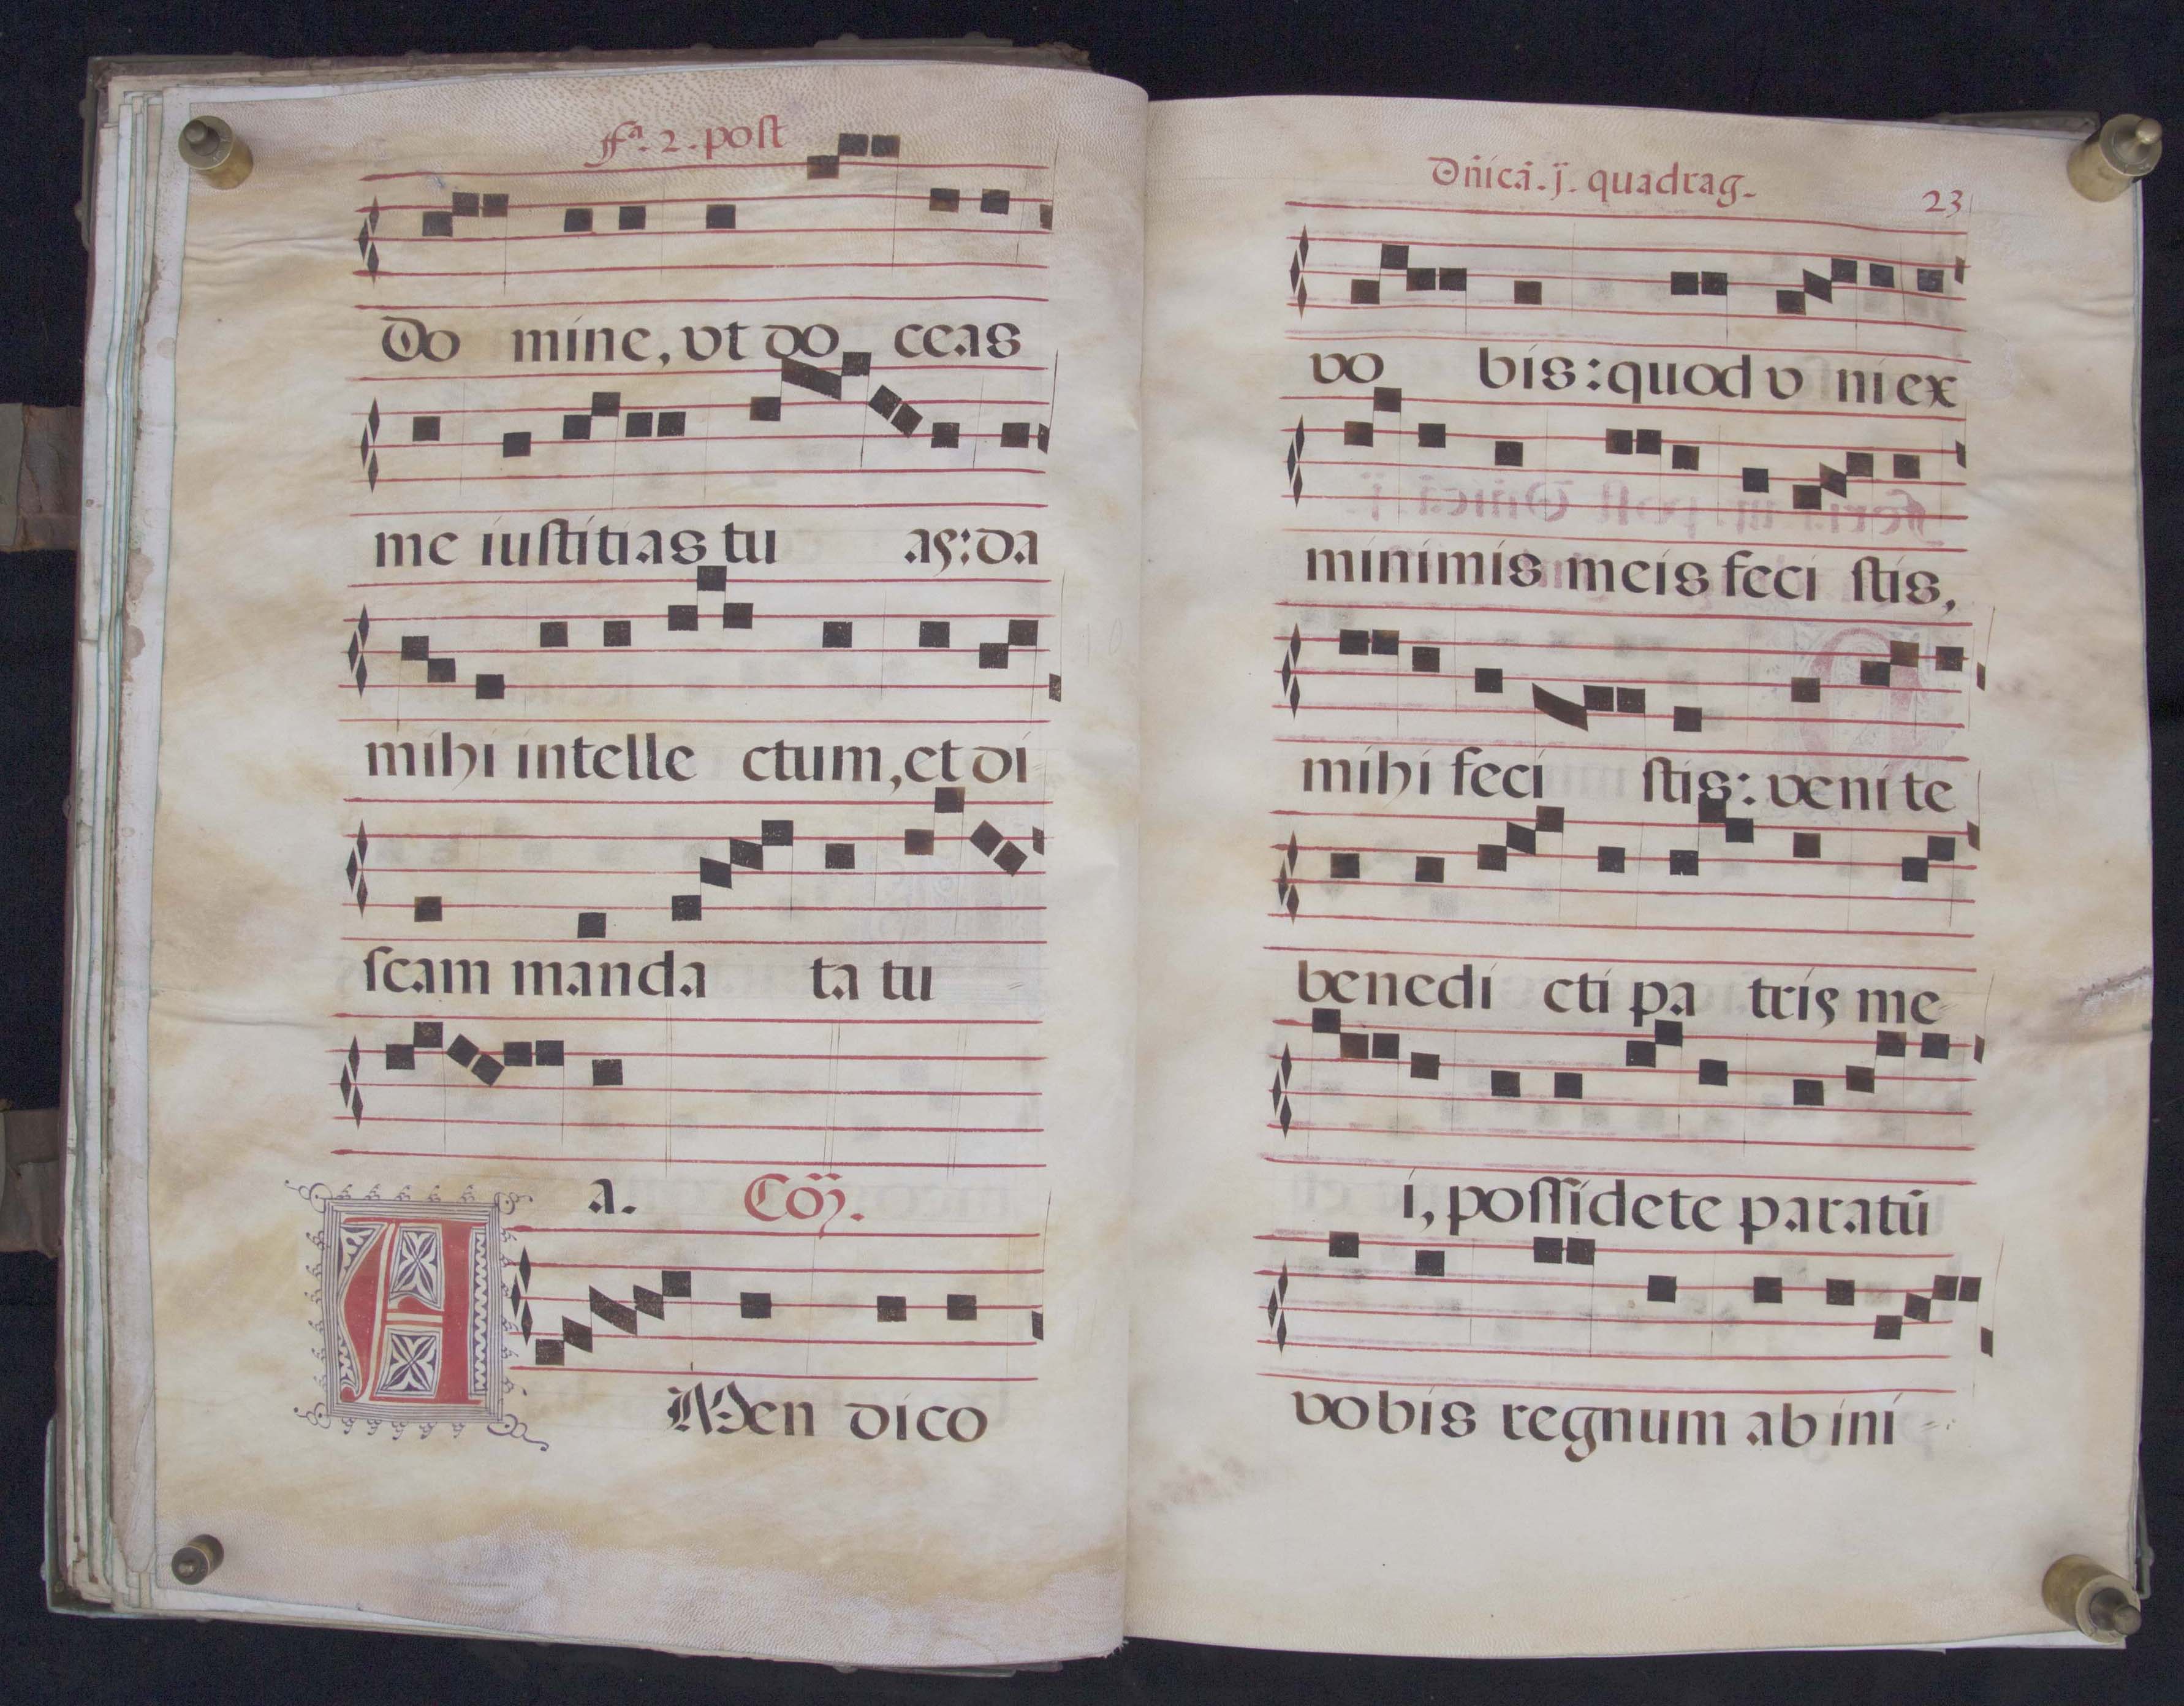 fª. 2. post
Do mine, vt do ceas
me iustitias tu as: da
mihi intelle ctum, et di
scam manda ta tu
a. Cõ.
AMen dico
Dñicã. j. quadrag.
23
vo bis: quod v ni ex
minimis meis feci stis,
mihi feci stis: veni te
benedi cti pa tris me
i, possidete paratũ
vobis regnum ab ini